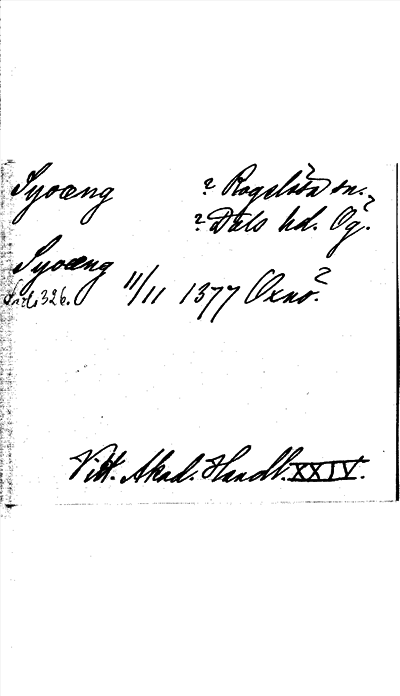 Syoæng ? Rogslösa sn. ?
? Dals hd. Ög.
Syoæng 11/11 1377 Oxnö. ?
326.
Vitt. Akad. Handl. XXIV.